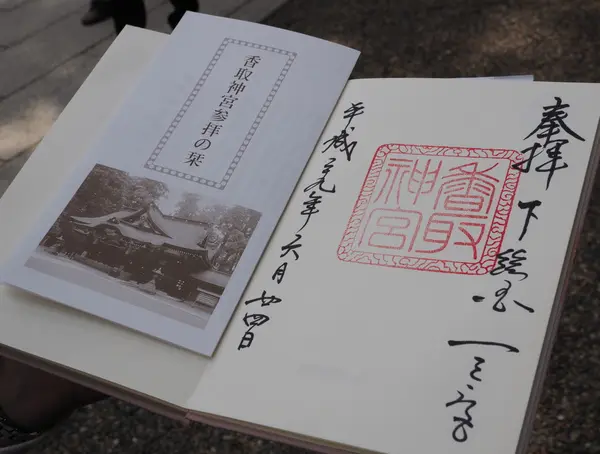 香取神宮参拝の栞
奉拝 下総国 一之宮
香取
神宮
平成二九年六月廿四日